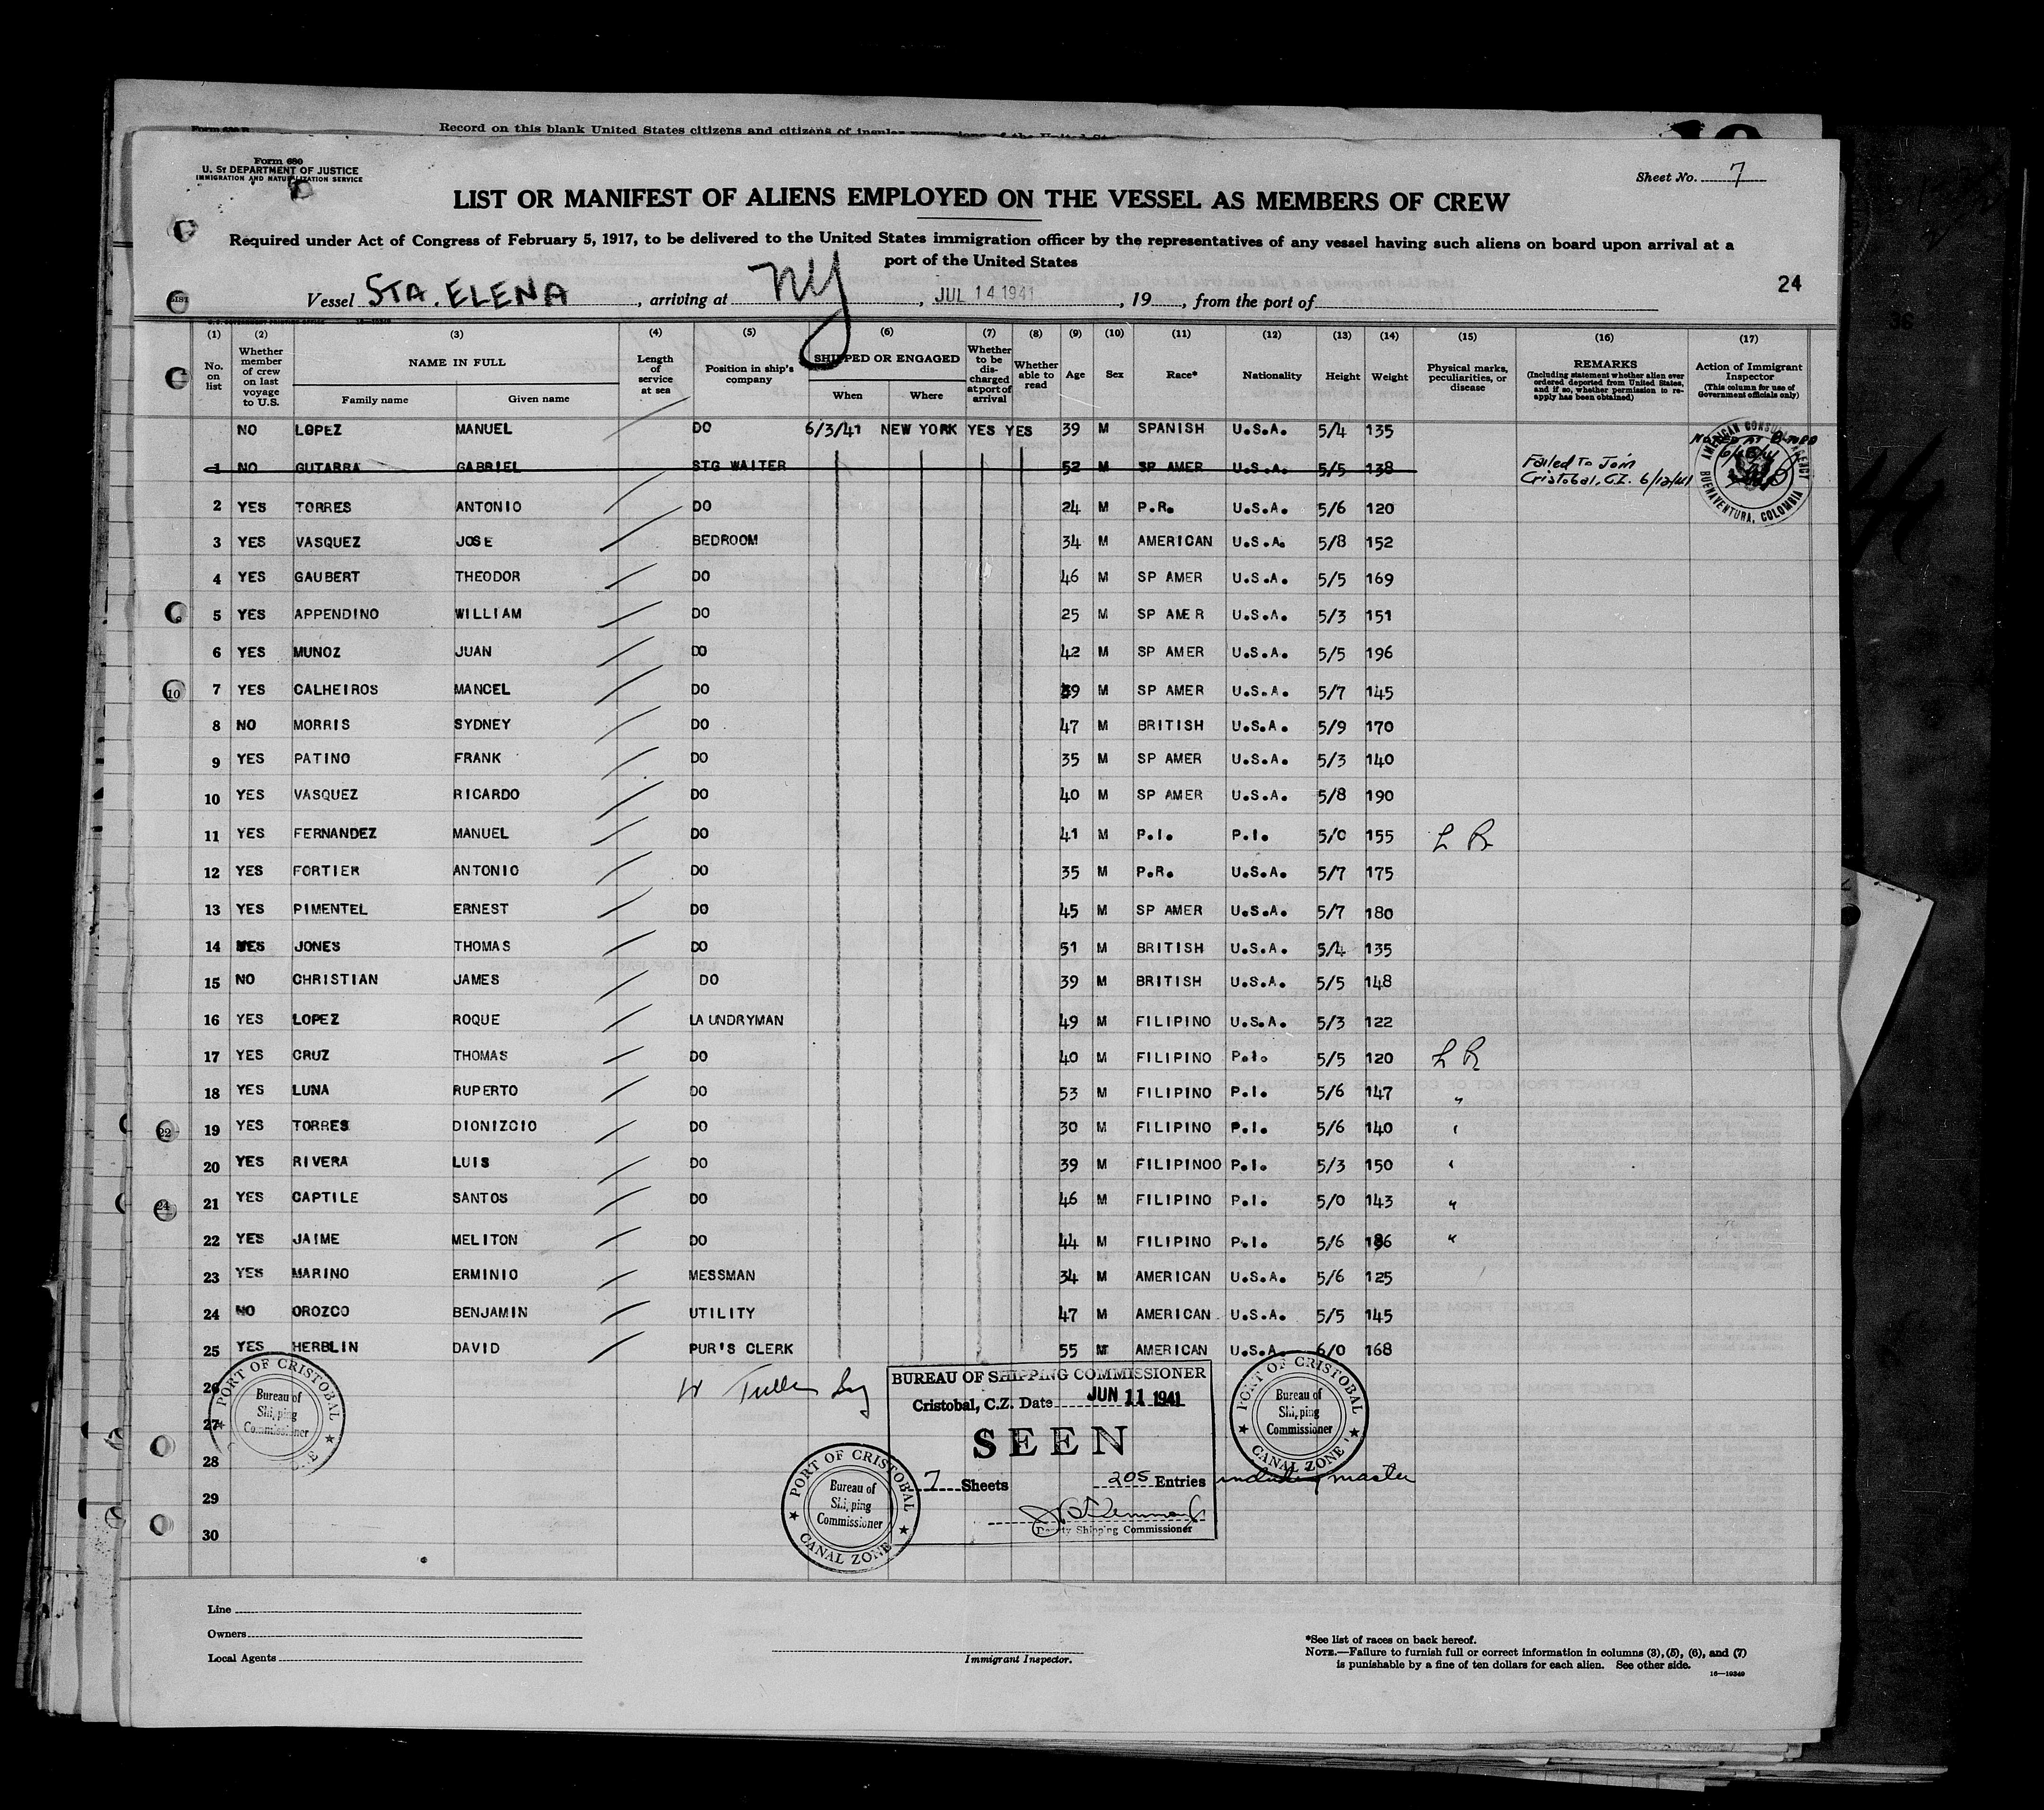 Record on this blank United States citizens and citizens of insular possessions of the United
Form 680
U. S. DEPARTMENT OF JUSTICE
IMMIGRATION AND NATURALIZATION SERVICE
Sheet No. 7
LIST OR MANIFEST OF ALIENS EMPLOYED ON THE VESSEL AS MEMBERS OF CREW
Required under Act of Congress of February 5, 1917, to be delivered to the United States immigration officer by the representatives of any vessel having such aliens on board upon arrival at a
port of the United States
24
Vessel STA. ELENA, arriving at NY, JUL 14 1941, 19, from the port of
(1) (2) (3) (4) (5) (6) (7) (8) (9) (10) (11) (12) (13) (14) (15) (16) (17)
No. on list
Whether member of crew on last voyage to U.S.
NAME IN FULL
Family name
Given name
Length of service at sea
Position in ship's company
SHIPPED OR ENGAGED
When
Where
Whether to be discharged at port of arrival
Whether able to read
Age
Sex
Race*
Nationality
Height
Weight
Physical marks, peculiarities, or disease
REMARKS
(Including statement whether alien ever ordered deported from United States, and if so, whether permission to reapply has been obtained)
Action of Immigrant Inspector
(This column for use of Government officials only)
NO LOPEZ MANUEL DO 6/3/41 NEW YORK YES YES 39 M SPANISH U.S.A. 5/4 135
1 NO GUTARRA GABRIEL STG WAITER 52 M SP AMER U.S.A. 5/5 138 Failed To Join
Cristobal, C.Z. 6/12/41
AMERICAN CONSULAR AGENCY
BUENAVENTURA, COLOMBIA
2 YES TORRES ANTONIO DO 24 M P.R. U.S.A. 5/6 120
3 YES VASQUEZ JOSE BEDROOM 34 M AMERICAN U.S.A. 5/8 152
4 YES GAUBERT THEODOR DO 46 M SP AMER U.S.A. 5/5 169
5 YES APPENDINO WILLIAM DO 25 M SP AMER U.S.A. 5/3 151
6 YES MUNOZ JUAN DO 42 M SP AMER U.S.A. 5/5 196
7 YES CALHEIROS MANCEL DO 39 M SP AMER U.S.A. 5/7 145
8 NO MORRIS SYDNEY DO 47 M BRITISH U.S.A. 5/9 170
9 YES PATINO FRANK DO 35 M SP AMER U.S.A. 5/3 140
10 YES VASQUEZ RICARDO DO 40 M SP AMER U.S.A. 5/8 190
11 YES FERNANDEZ MANUEL DO 41 M P.I. P.I. 5/0 155 L R
12 YES FORTIER ANTONIO DO 35 M P.R. U.S.A. 5/7 175
13 YES PIMENTEL ERNEST DO 45 M SP AMER U.S.A. 5/7 180
14 YES JONES THOMAS DO 51 M BRITISH U.S.A. 5/4 135
15 NO CHRISTIAN JAMES DO 39 M BRITISH U.S.A. 5/5 148
16 YES LOPEZ ROQUE LAUNDRYMAN 49 M FILIPINO U.S.A. 5/3 122
17 YES CRUZ THOMAS DO 40 M FILIPINO P.I. 5/5 120 L R
18 YES LUNA RUPERTO DO 53 M FILIPINO P.I. 5/6 147 "
19 YES TORRES DIONIZCIO DO 30 M FILIPINO P.I. 5/6 140 "
20 YES RIVERA LUIS DO 39 M FILIPINOO P.I. 5/3 150 "
21 YES CAPTILE SANTOS DO 46 M FILIPINO P.I. 5/0 143 "
22 YES JAIME MELITON DO 44 M FILIPINO P.I. 5/6 186 "
23 YES MARINO ERMINIO MESSMAN 34 M AMERICAN U.S.A. 5/6 125
24 NO OROZCO BENJAMIN UTILITY 47 M AMERICAN U.S.A. 5/5 145
25 YES HERBLIN DAVID PUR'S CLERK 55 M AMERICAN U.S.A. 6/0 168
26
27
28
29
30
PORT OF CRISTOBAL
Bureau of Shipping Commissioner
BUREAU OF SHIPPING COMMISSIONER
Cristobal, C.Z. Date JUN 11 1941
SEEN
7 Sheets 205 Entries including master
Deputy Shipping Commissioner
PORT OF CRISTOBAL
Bureau of Shipping Commissioner
CANAL ZONE
PORT OF CRISTOBAL
Bureau of Shipping Commissioner
CANAL ZONE
Line
Owners
Local Agents
Immigrant Inspector.
*See list of races on back hereof.
NOTE.—Failure to furnish full or correct information in columns (3), (5), (6), and (7)
is punishable by a fine of ten dollars for each alien. See other side.
16—19349